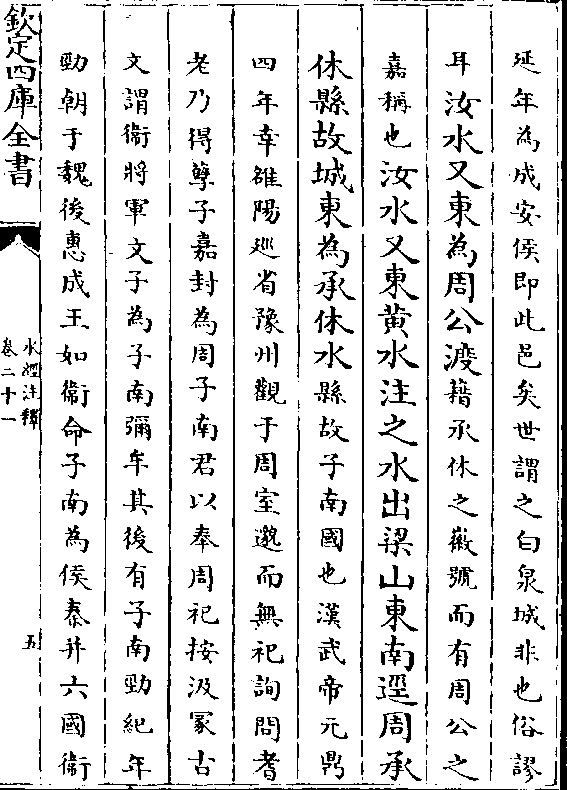 延年為成安侯即此邑矣世謂之白泉城非也俗謬
耳汝水又東為周公渡藉承休之徽號而有周公之
嘉稱也汝水又東黄水注之水出梁山東南逕周承
休縣故城東為承休水縣故子南國也漢武帝元鼎
四年幸雒陽巡省豫州觀于周室邈而無祀詢問耆
老乃得孽子嘉封為周子南君以奉周祀按汲冢古
文謂衞將軍文子為子南彌牟其後有子南勁紀年
勁朝于魏後惠成王如衞命子南為侯秦并六國衞
欽定四庫全書
水經注釋
卷二十一
五